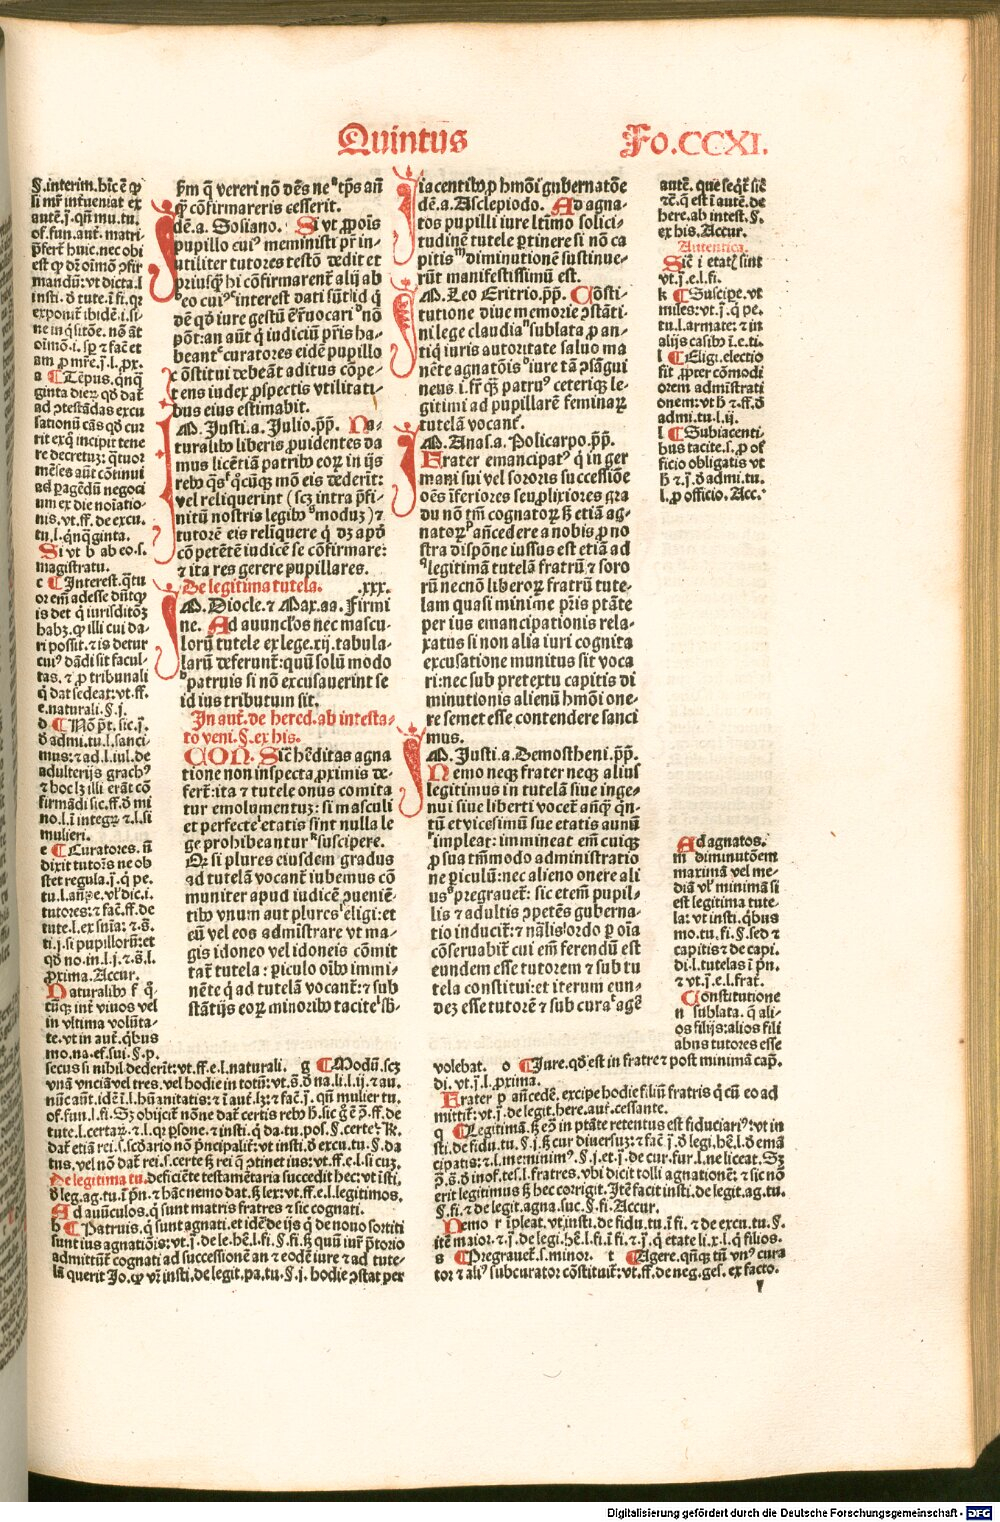 Quintus
Fo.CCXI.
§.interim.hic ē ꝙ
si mr̄ inueniat ex
autē.j.qn̄ mu.tu.
of.fun.aut̄.matri
p̄fert̄ huic.nec obi
insti.ð tute.i fi.qr̄
exponit̄ ibidē.i.si
a ¶ Tēpus.qnq̄
ginta dierꝫ qð dat̄
ad ꝓtestādas excu
sationū cās qð cur
rit exq̄ incipit tene
re decretuꝫ:qttuor
mēses aūt cōtinui
ad pagēdū negoci
um ex die noiatio-
nis.vt.ff.de excu.
tu.l.qnq̄ginta.
Si vt b ab eo.s.
magistratu.
c ¶ Interest.qtu
or em̄ adesse dn̄tꝗ
is det q̄ iurisditōꝫ
habꝫ.ꝙ illi cui da-
ri possit.⁊ is detur
cui⁹ dādi sit facul-
tas.⁊ ꝓ tribunali
q̄ dat sedeat:vt.ff.
e.naturali.§.j.
d ¶ Nō p̄t.sic.j.
ð admi.tu.l.sanci
mus:⁊ ad.l.iul.de
adulterijs grach⁹
⁊ hoc lꝫ illi erāt cō
firmādi sic.ff.ð mi
no.l.i integrꝫ ⁊.l.si
mulieri.
e ¶ Curatores.n̄
dixit tutor̄s ne ob
stet regula.j.q̄ pe.
tu.l.
tutores:⁊ fac̄.ff.de
tute.l.ex sn̄ia:⁊.s̄.
ti.j.si pupillorū:et
qð no.in.l.j.⁊.s̄.l.
ꝓxima.Accur.
Naturalibꝫ f q̄-
cūqꝫ int̄ viuos vel
in vltima volūta-
te.vt in aut̄.qbus
mo.na.ef.sui.§.p.
fm q̄ vereri nō dēs ne tp̄s aū
qꝫ cōfirmareris cesserit.
dē.a. Sosiano. Si vt ꝓpōis
pupillo cui⁹ meministi pr̄ in-
utiliter tutores testō dedit et
priusqꝫ hi cōfirmarent̄ alij ab
eo cui⁹ interest dati sūt:id q̄
dē qð iure gestū ē r̄uocari nō
pōt:an aūt q̄ iudiciū pr̄is ha-
beant̄ curatores eidē pupillo
cōstitui debeāt aditus cōpe-
tens iudex ꝓspectis vtilitati-
bus eius estimabit.
A. Justi.a. Julio.p̄p̄. Na-
turalibꝫ liberis ꝓuidentes da
mus licētiā patribꝫ eorꝫ in ijs
rebꝫ q̄s q̄cūqꝫ mō eis dederīt:
vel reliquerint (scꝫ intra p̄fi-
nitū nostris legibꝫ moduꝫ) ⁊
tutorē eis relīquere q̄ dꝫ apd
cōpetētē iudicē se cōfirmare:
⁊ ita res gerere pupillares.
De legitima tutela. .xxx.
A. Diocle.⁊ Max.aa. Firmi
ne. Ad auunclos nec mascu-
lorū tutele ex lege.xij.tabula-
larū deferunt̄:quū solū modo
patruis si nō excusauerint se
id ius tributum sit.
In aut̄.de hered.ab intesta-
to veni.§.ex his.
CON. Sic h̄editas agna
tione non inspecta ꝓximis de-
fert̄:ita ⁊ tutele onus comita
tur emolumentuꝫ:si masculi
et perfecte etatis sint nulla le
ge prohibeantur suscipere.
Qr̄ si plures eiusdem gradus
ad tutelā vocant̄ iubemus cō
muniter apud iudicē ꝓueniē-
tibꝫ vnum aut plures eligi:et
eū vel eos admīstrare vt ma-
gis idoneo vel idoneis cōmit
tat̄ tutela:periculo oīm immi-
nēte q̄ ad tutelā vocant̄:⁊ sub
stātijs eorꝫ minoribꝫ tacite sb-
iacentibꝫ ꝓ hmōi gubernatōe
dē.a. Asclepiodo. Ad agna-
tos pupilli iure ltīmo solici-
tudinē tutele ꝑtinere si nō ca
pitis diminutionē sustinue-
rūt manifestissimū est.
A. Leo Eritrio.p̄p̄. Cōsti-
tutione diue memorie ꝓstāti-
ni lege claudia sublata ꝓ an-
tiq̄ iuris autoritate saluo ma
nēte agnatōis iure tā ꝓsāgui
neus.i.fr̄ qꝫ patru⁹ ceteriqꝫ le-
gitimi ad pupillarē feminarꝫ
tutelā vocant̄.
A. Anas.a. Policarpo.p̄p̄.
Frater emancipat⁹ q̄ in ger
mani sui vel sororis successiōe
oēs īferiores seu ꝓlixiores gra
du nō tm̄ cognatorꝫ sꝫ etiā ag-
natorꝫ an̄cedere a nobis ꝓ no
stra dispōne iussus est etiā ad
legitimā tutelā fratrū ⁊ soro
rū necnō liberorꝫ fratrū tute-
lam quasi minime pr̄is ptāte
per ius emancipationis rela-
xatus si non alia iuri cognita
excusatione munitus sit voca
ri:nec sub pretextu capitis di
minutionis alienū hmōi one-
re semet esse contendere sanci
mus.
A. Justi.a. Demostheni.p̄p̄.
Nemo neqꝫ frater neqꝫ alius
legitimus in tutelā siue inge-
nui siue liberti vocet̄ anq̄ꝫ qn-
tū et vicesimū sue etatis annū
impleat:immineat em̄ cuiqꝫ
ꝓ sua tm̄modo administratio
ne periculū:nec alieno onere ali
us pregrauet̄:sic etem̄ pupil-
lis ⁊ adultis ꝓpetēs guberna-
tio inducit̄:⁊ nālis ordo ꝑ oīa
cōseruabit̄ cui em̄ ferendū est
eundem esse tutorem ⁊ sub tu
tela constitui:et iterum eun-
deꝫ esse tutorē ⁊ sub cura agē
autē.que seqr̄ sic
⁊c̄.q̄ est i autē.de
here.ab intest.§.
ex his.Accur.
Autentica.
Sic i etatꝫ sint
vt.j.e.l.fi.
k ¶ Suscipe.vt
miles:vt.j.q̄ pe.
tu.l.armate:⁊ in
alijs casibꝫ i.e.ti.
l ¶ Eligi.electio
fit ꝓpter cōmodi
orem admīstrati
onem:vt b ⁊.ff.ð
admi.tu.l.ij.
l ¶ Subiacenti
bus tacite.s.ꝓ of
ficio obligatis vt
b ⁊.j.ð admi.tu.
l.ꝓ officio.Acc.
Ad agnatos.
m diminutōem
maximā vel me-
diā vl̄ minimā si
est legitima tute-
la:vt insti.qbus
mo.tu.fi.§.sed ⁊
capitis ⁊ de capi.
di.l.tutelas i p̄n.
⁊ vt.j.e.l.frat̄.
Constitutione
n sublata.q̄ ali-
os filijs:alios fili
abus tutores esse
secus si nihil dederit:vt.ff.e.l.naturali. g ¶ Modū.scꝫ
vnā vnciā vel tres.vel hodie in totū:vt.s̄.ð na.li.l.ij.⁊ au.
of.fun.l.fi.Sꝫ obijcit̄ nōne dat̄ certis rebꝫ
tus.vel nō dat̄ rei.s.certe sꝫ rei q̄ ꝓtinet ius:vt.ff.e.l.si cuꝫ.
De legitima tu.deficiēte testamētaria succedit hec:vt īsti.
ð leg.ag.tu.i p̄n.⁊ hāc nemo dat.sꝫ lex:vt.ff.e.l.legitimos.
Ad auūculos.q̄ sunt matris fratres ⁊ sic cognati.
h ¶ Patruis.q̄ sunt agnati.et idē de ijs q̄ de nouo sortiti
sunt ius agnatiōis:vt.j.de le.hē.l.fi.§.fi.sꝫ quū iur̄ p̄torio
admittūt̄ cognati ad successionē an ⁊ eodē iure ⁊ ad tute-
lā querit Jo.ꝙ vr̄ insti.de legit.pa.tu.§.j. hodie ꝓstat per
volebat. o ¶ Jure.qð est in fratre ⁊ post minimā cap̄.
di.vt.j.l.ꝓxima.
Frater p an̄cedē.excipe hodie filiū fratris q̄ cū eo ad
mittit̄:vt.j.de legit.here.aut̄.cessante.
q ¶ Legitimā.sꝫ eō in ptāte retentus est fiduciari⁹:vt in
sti.de fidu.tu.§.j.sꝫ cur diuersuꝫ:⁊ fac̄ j.ð legi.hē.l.ð emā
cipatis:⁊.l.me:minim⁹.§.j.et.j.de cur.fur.l.ne liceat.Sꝫ
p̄.s̄.ð inof.tes.l.fratres.vbi dicit tolli agnationē:⁊ sic nō
erit legitimus sꝫ hec corrigit.Itē facit insti.de legit.ag.tu.
§.fi.⁊ de legit.agna.suc.§.fi.Accur.
Nemo r īpleat.vt.insti.de fidu.tu.i fi.⁊ de excu.tu.§.
itē maior.⁊.j.de legi.hē.l.fi.i fi.⁊.j.q̄ etate li.x.l.q̄ filios.
s ¶ Pregrauet̄.s.minor. t ¶ Agere.qn̄qꝫ tn̄ vn⁹ cura
tor ⁊ ali⁹ subcurator cōstituit̄:vt.ff.de neg.ges.ex facto.
Digitalisierung gefördert durch die Deutsche Forschungsgemeinschaft - DFG